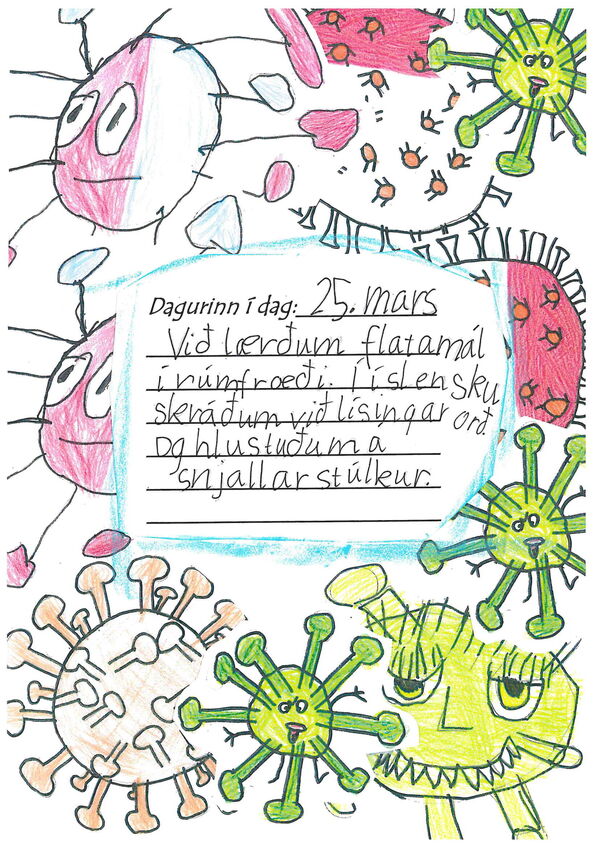 Dagurinn í dag: 25. mars
Við lærðum flatamál
í rúmfroeði. Í íslensku
skráðum við lísingar orð.
og hlustuðum á
snjallar stúlkur.